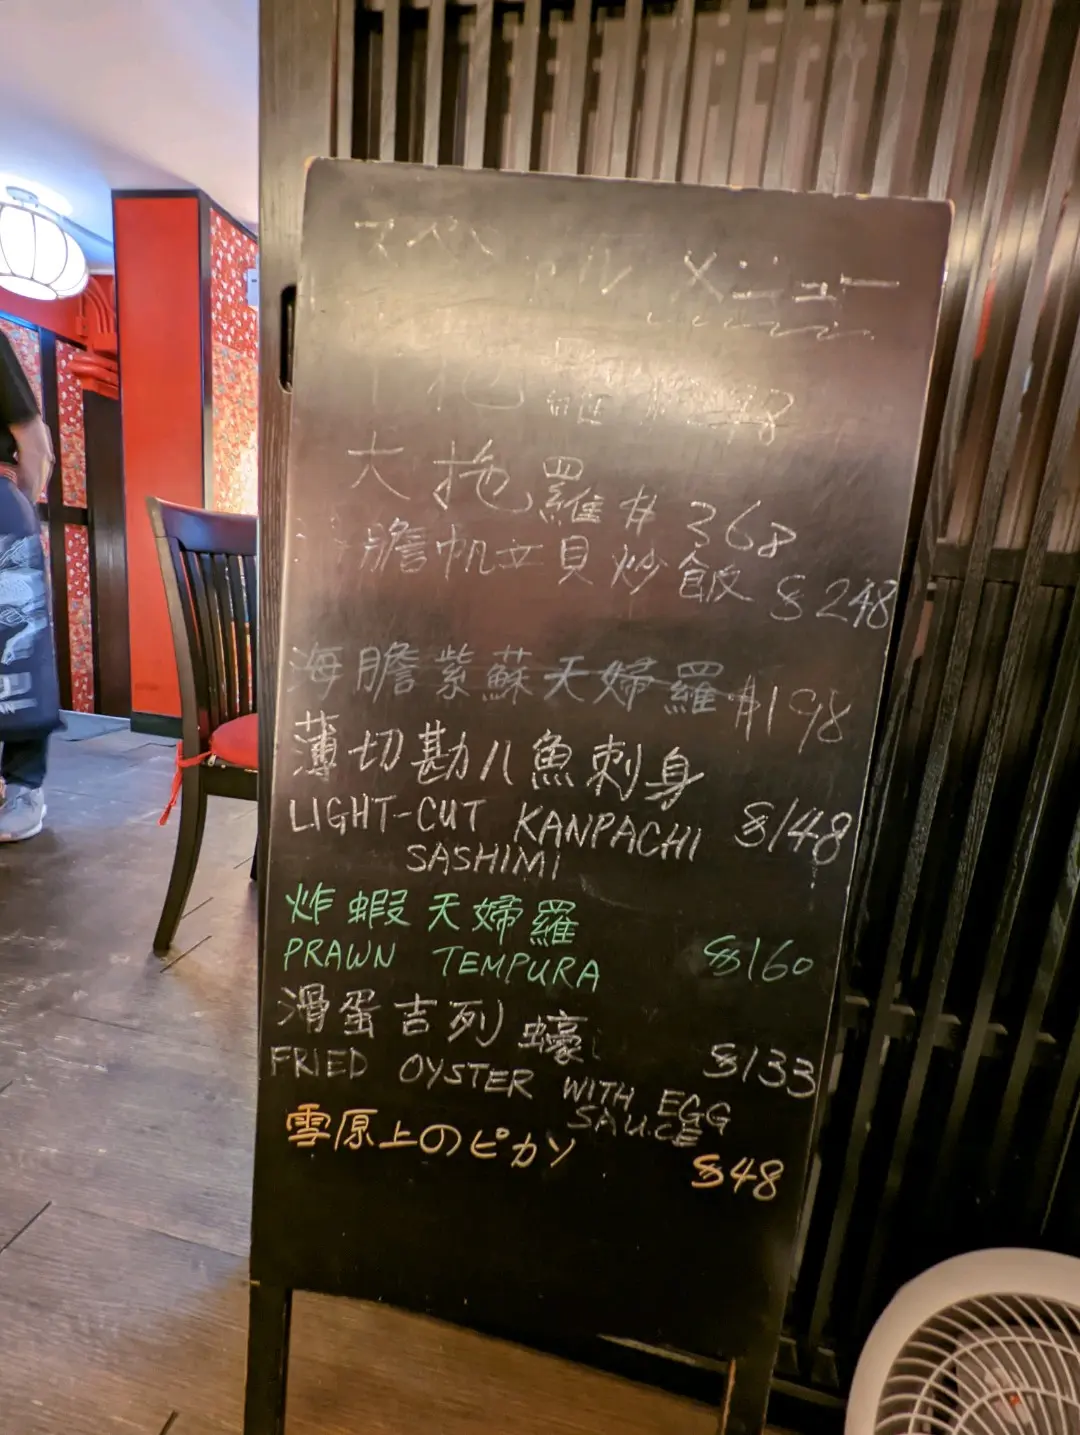 スペシャル メニュー
中拖羅 98
大拖羅 $368
海膽帆立貝炒飯 $248
海膽紫蘇天婦羅 $198
薄切勘八魚刺身
LIGHT-CUT KANPACHI $148
SASHIMI
炸蝦天婦羅
PRAWN TEMPURA $160
滑蛋吉列蠔
FRIED OYSTER WITH EGG $133
SAUCE
雪原上のピカソ $48